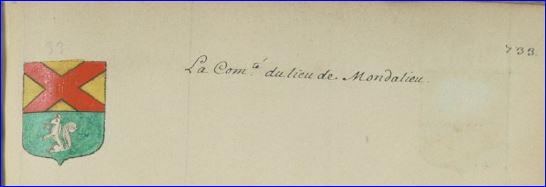 32
733.
La Com.té du lieu de Mondalieu.